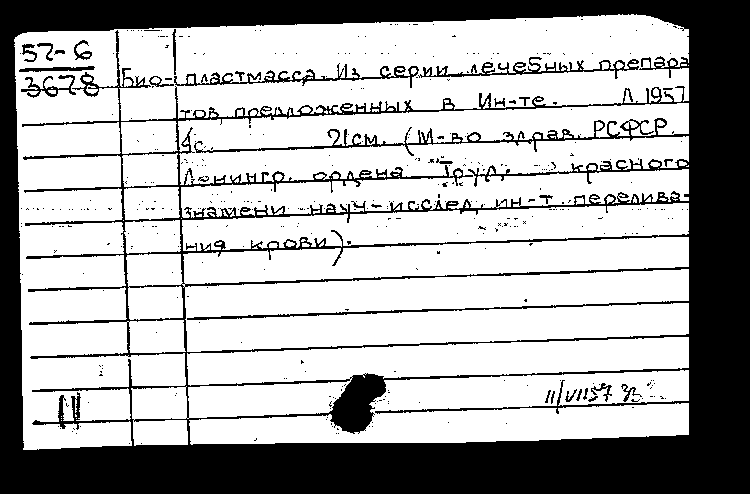 57-6
3678
Био-пластмасса. Из серии лечебных препара
тов, предложенных в Ин-те. Л. 1957
4с. 21см. (М-во здрав. РСФСР.
Ленингр. ордена Труд. красного
знамени науч-исслед. ин-т перелива-
ния крови).
11/VII57